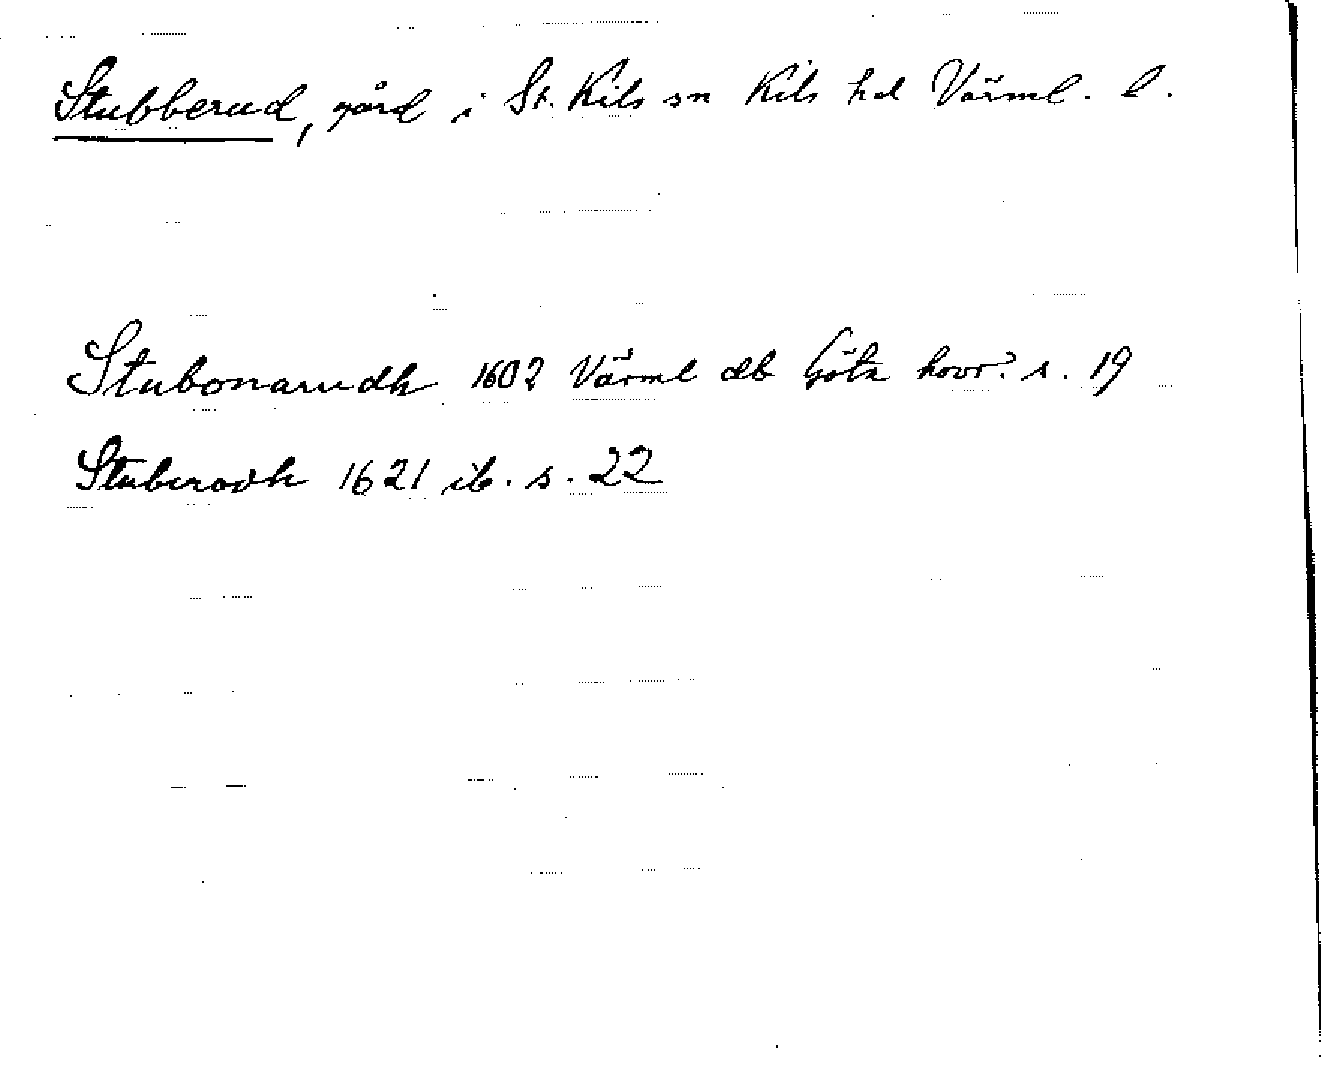 Stubberud, gård i St. Kils sn Kils hd Värml. l.
Stubonarudh 1602 Värml db Göta hovr. s. 19
Stuberodh 1621 ib. s. 22